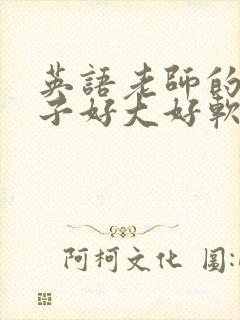 英語老師的
子好大好軟
阿柯文化 圖: